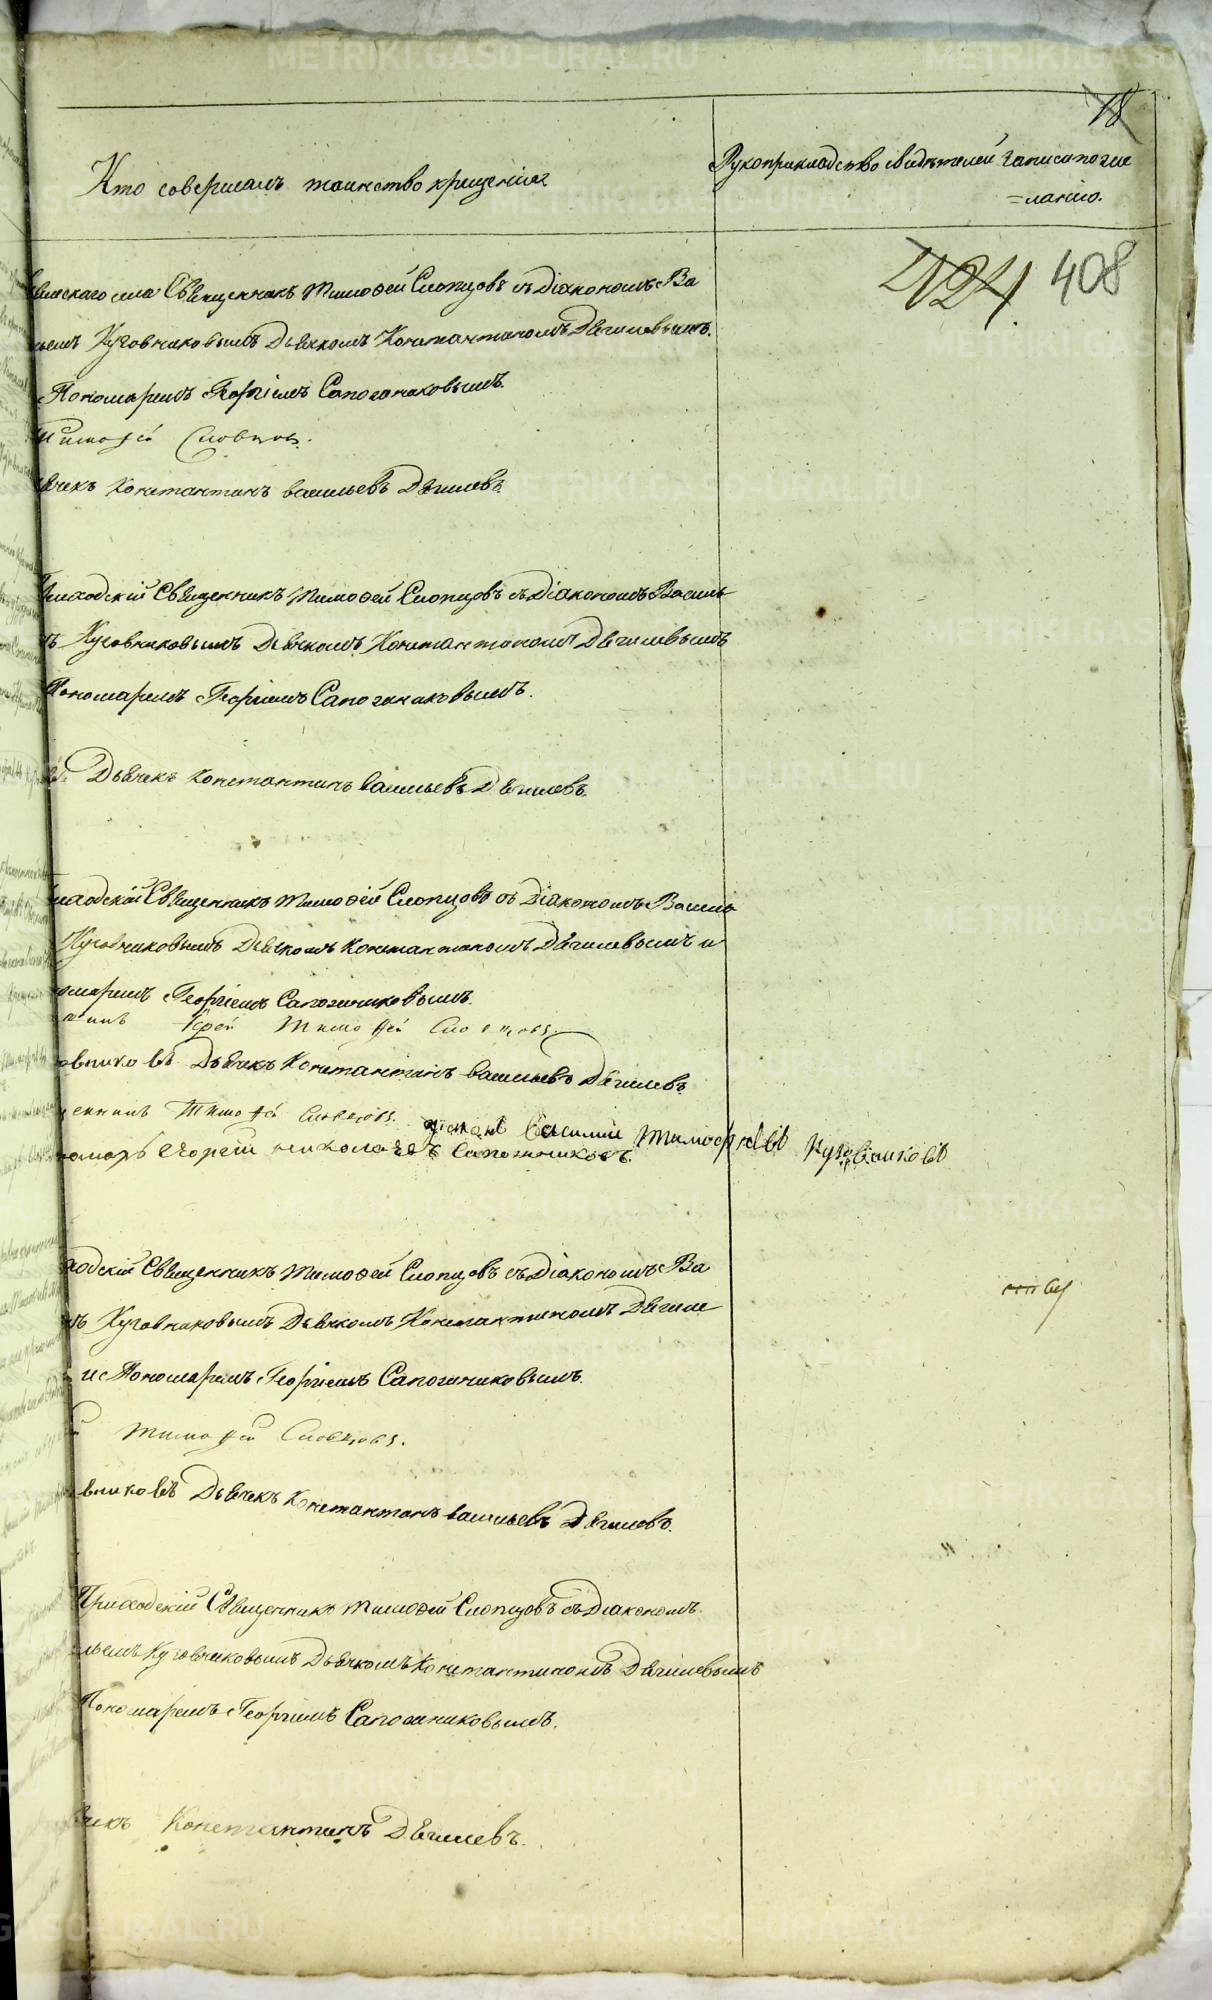 18
Кто совершалъ таинство крещенія
Рукоприкладство свидѣтелей записи по же
=ланію.
424 408
села Священникъ Тимофей Словцовъ съ Діакономъ Ва
Кузовниковымъ Дьячкомъ Константиномъ Дягилевымъ.
Пономаремъ Георгіемъ Сапожниковымъ.
Тимофей Словцовъ.
Константинъ Васильевъ Дягилевъ.
Приходскій Священникъ Тимофей Словцовъ съ Діакономъ Василь
Кузовниковымъ Дьячкомъ Константиномъ Дягилевымъ
Пономаремъ Георгіемъ Сапожниковымъ.
Дьячекъ Константинъ Васильевъ Дягилевъ.
иходскій Священникъ Тимофей Словцовъ съ Діакономъ Василь
Кузовниковымъ Дьячкомъ Константиномъ Дягилевымъ и
омаремъ Георгіемъ Сапожниковымъ.
Іерей Тимофей Словцовъ.
овниковъ Дьячекъ Константинъ Васильевъ Дягилевъ
Тимофей Словцовъ. Діаконъ Василий Тимофѣевъ Кузовниковъ
номарь Георгій Николаевъ Сапожниковъ.
ходскій Священникъ Тимофей Словцовъ съ Діакономъ Ва
Кузовниковымъ Дьячкомъ Константиномъ Дягиле
и Пономаремъ Георгіемъ Сапожниковымъ.
Тимофей Словцовъ.
вниковъ Дьячекъ Константинъ Васильевъ Дягилевъ.
Приходскій Священникъ Тимофей Словцовъ съ Діакономъ
льемъ Кузовниковымъ Дьячкомъ Константиномъ Дягилевымъ
Пономаремъ Георгіемъ Сапожниковымъ.
чикъ Константинъ Дягилевъ.
METRIKI.GASO-URAL.RU